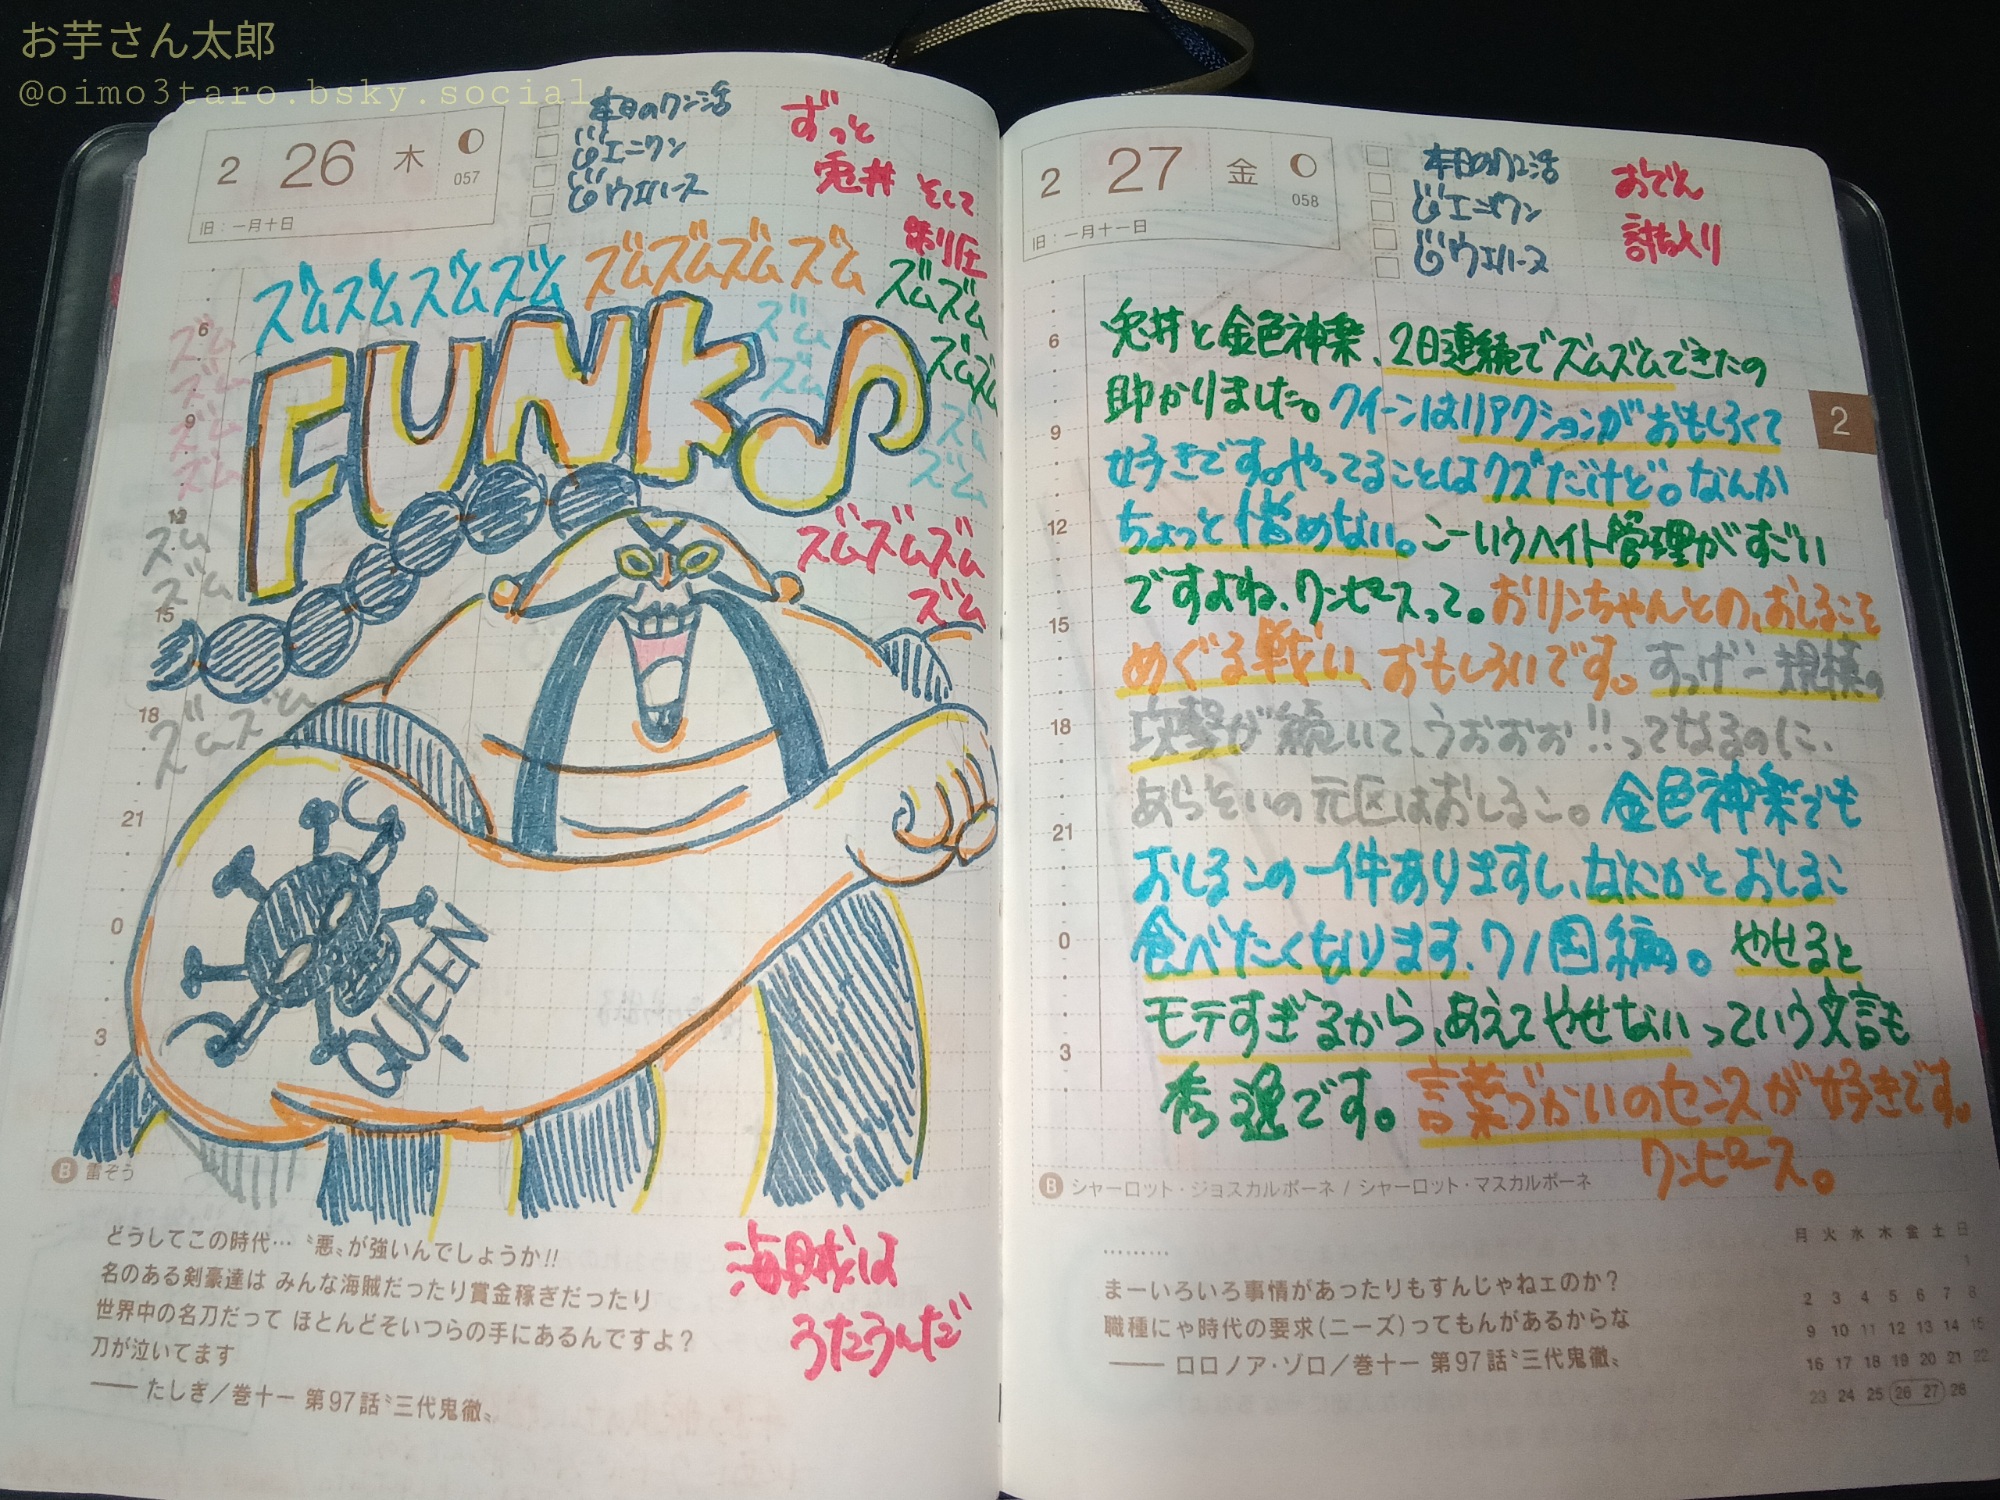 お芋さん太郎
@oimo3taro.bsky.social
2 26 木
057
旧：一月十日
本日のワン活
エニワン
ウエハース
ずっと
兎丼 そして
制圧
ズムズムズムズム ズムズムズムズム
ズムズム
ズムズム
ズム
ズム
ズム
ズム
ズム
ズム
ズム
ズム
FUNK♪
ズムズムズム
ズム
ズム
ズム
ズムズム
6
9
12
15
18
21
0
3
QUEEN
B 雷ぞう
どうしてこの時代… 〝悪〟が強いんでしょうか!!
名のある剣豪達は みんな海賊だったり賞金稼ぎだったり
世界中の名刀だって ほとんどそいつらの手にあるんですよ？
刀が泣いてます
—— たしぎ／巻十一 第97話〝三代鬼徹〟
海賊は
うたうんだ
2 27 金
058
旧：一月十一日
本日のワン活
エニワン
ウエハース
おでん
討ち入り
2
6
9
12
15
18
21
0
3
兎丼と金色神楽、2日連続でズムズムできたの
助かりました。クイーンはリアクションがおもしろくて
好きです。やってることはクズだけど。なんか
ちょっと憎めない。こーいうヘイト管理がすごい
ですよね、ワンピースって。おリンちゃんとの、おしるこを
めぐる戦い、おもしろいです。すっげー規模の
攻撃が続いて、うおおお!!ってなるのに、
あらそいの元凶はおしるこ。金色神楽でも
おしるこの一件ありますし、なにかとおしるこ
食べたくなります、ワノ国編。やせると
モテすぎるから、あえてやせないっていう文言も
秀逸です。言葉づかいのセンスが好きです。
ワンピース。
B シャーロット・ジョスカルポーネ / シャーロット・マスカルポーネ
………
まーいろいろ事情があったりもすんじゃねェのか？
職種にゃ時代の要求(ニーズ)ってもんがあるからな
—— ロロノア・ゾロ／巻十一 第97話〝三代鬼徹〟
月 火 水 木 金 土 日
1
2 3 4 5 6 7 8
9 10 11 12 13 14 15
16 17 18 19 20 21 22
23 24 25 26 27 28